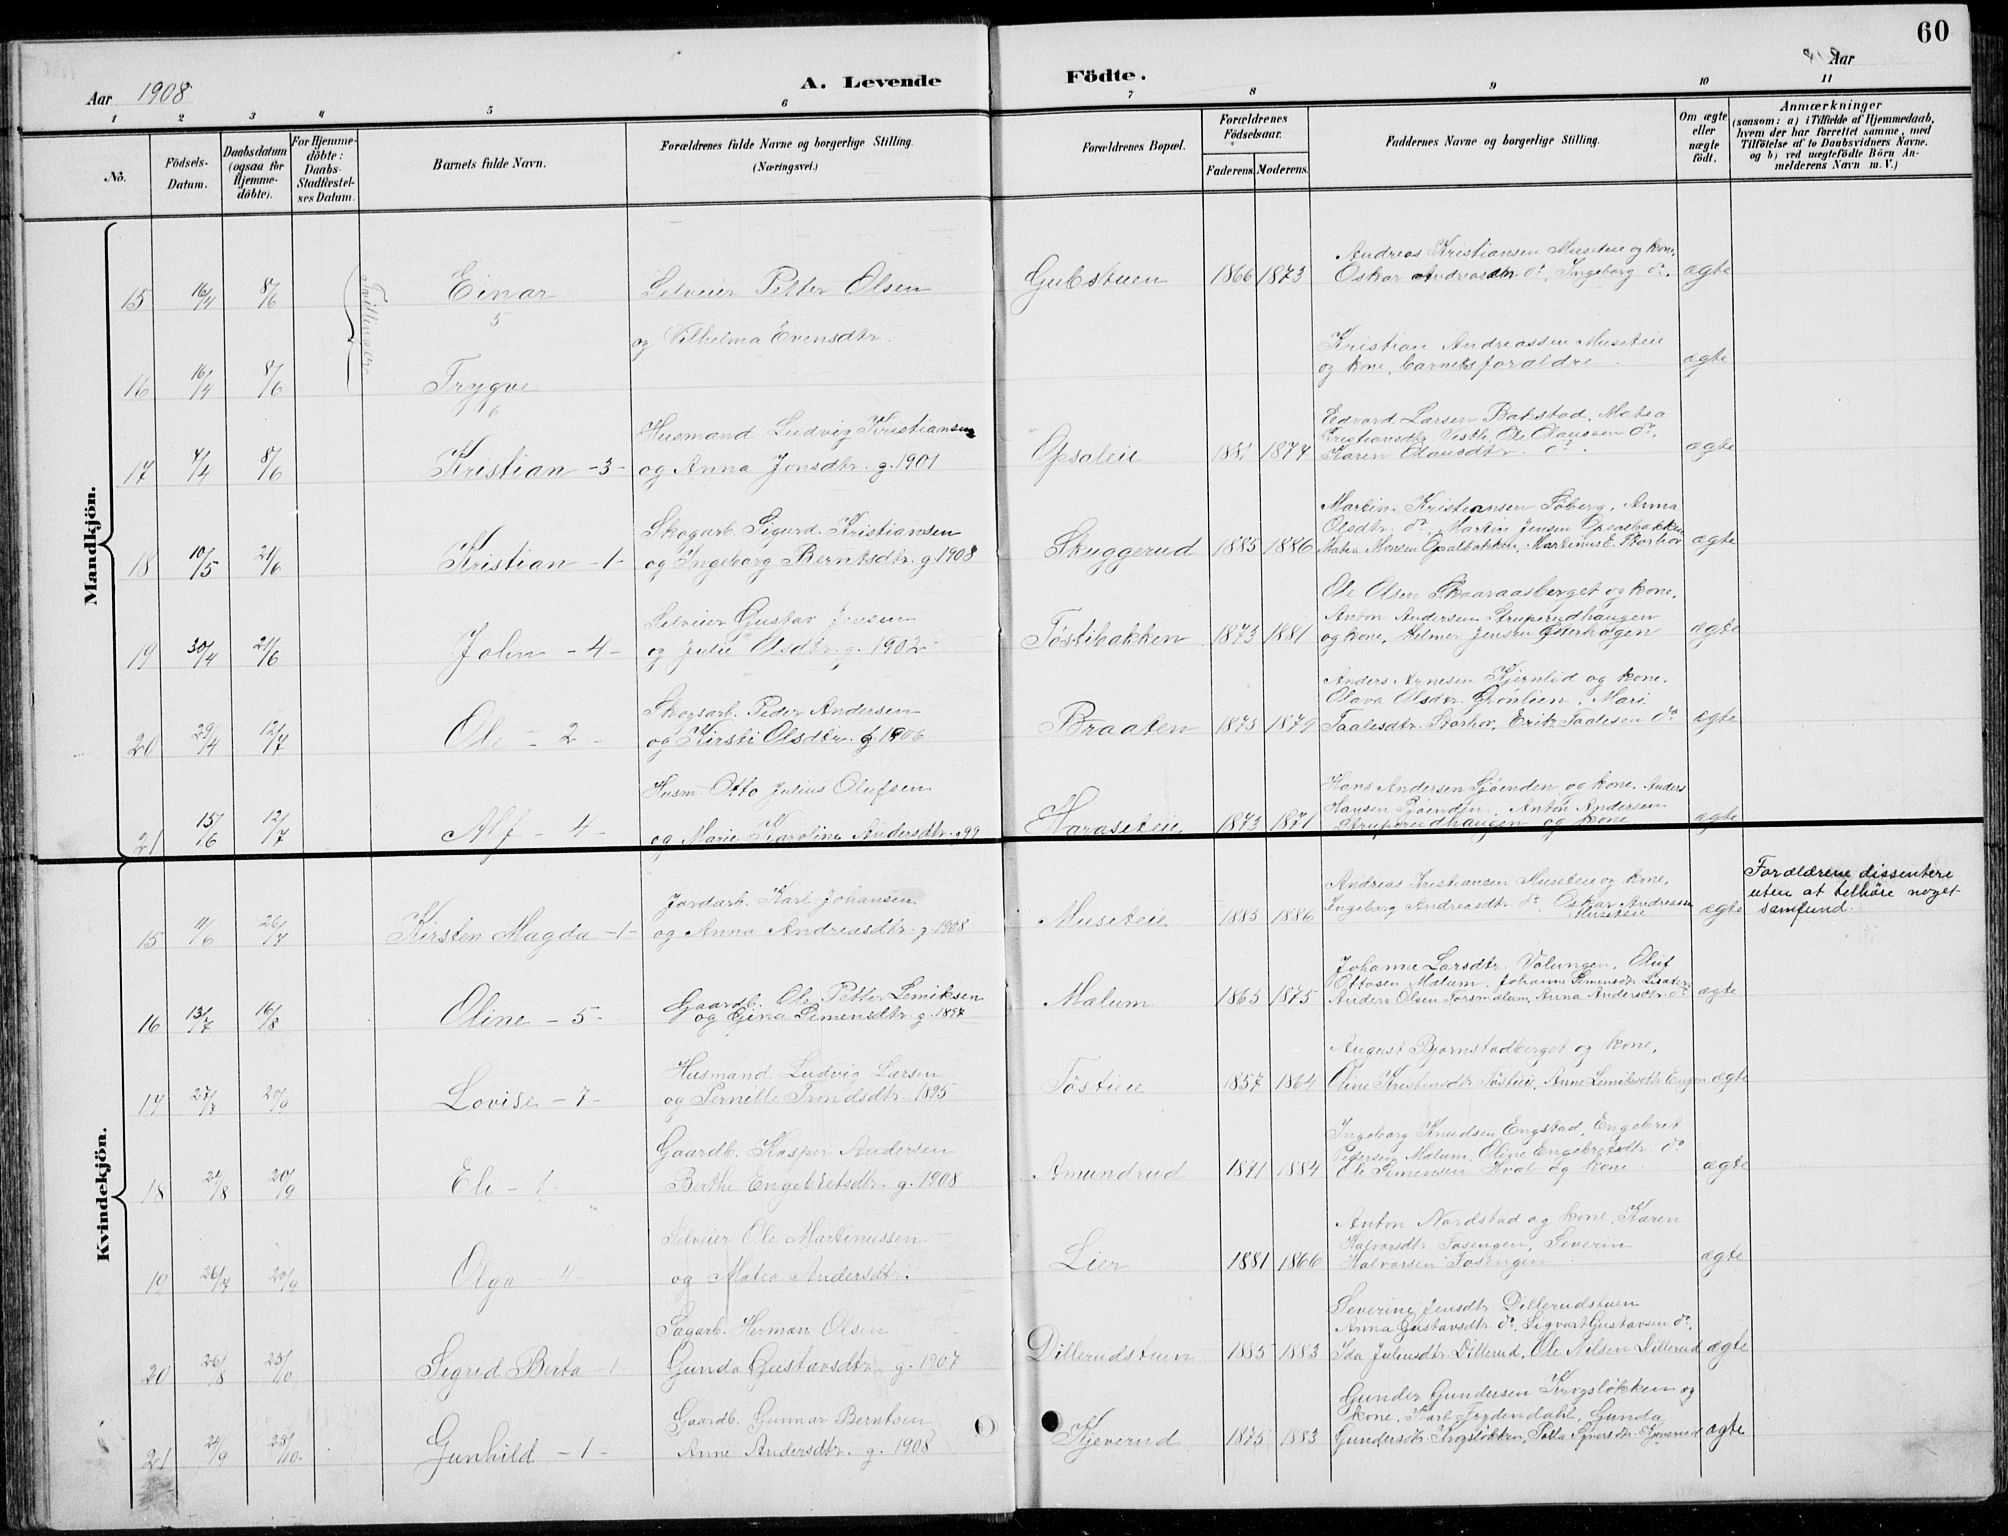 60
Aar 1908
A. Levende
Födte.
Aar
1 2 3 4 5 6 7 8 9 10 11
No.
Födsels-
Datum.
Daabsdatum
(ogsaa för
Hjemme-
döbte).
For Hjemme-
döbte:
Daabs-
Stadfæstel-
ses Datum.
Barnets fulde Navn.
Forældrenes fulde Navne og borgerlige Stilling.
(Næringsvei.)
Forældrenes Bopæl.
Forældrenes
Födselsaar.
Faderens. Moderens.
Faddernes Navne og borgerlige Stilling.
Om ægte
eller
uægte
födt.
Anmærkninger
(saasom: a) i Tilfælde af Hjemmedaab,
hvem der har forrettet samme, med
Tilföielse af to Daabsvidners Navne.
og b) ved uægtefödte Börn An-
melderens Navn m. V.)
Mandkjön.
Tvillingbrødre
15 16/4 8/6 Einar 5
Selveier Petter Olsen
og Vilhelma Evensdtr.
Gubstuen 1866 1873
Andreas Kristiansen Museteie og kone,
Oskar Andreasen do, Ingeborg do.
ægte
16 16/4 8/6 Trygve 6
Kristian Andreassen Museteie
og kone, barnets forældre.
ægte
17 7/4 8/6 Kristian - 3 -
Husmand Ludvig Kristiansen
og Anna Jonsdtr. g. 1901
Opsaleie 1881 1874
Edvard Larsen Bakstad, Matea
Kristiansdtr. Vestli, Ole Olaussen do.
Karen Olausdtr. do.
ægte
18 10/5 21/6 Kristian - 1 -
Skogarb. Sigurd Kristiansen
og Ingeborg Berntsdtr. g. 1908
Skuggerud 1885 1886
Martin Kristiansen Søberg, Anna
Olsdtr. do, Martin Jensen Opsalbakken
Matea Monsen Opalbakken, Martinus E. Storhov
ægte
19 30/4 21/6 John - 4 -
Selveier Gustav Jensen
og Julie Olsdtr. g. 1902
Tøstibakken 1873 1881
Ole Olsen Skaaraasberget og kone,
Anton Andersen Struperudhaugen
og kone, Helmer Jensen Østerhagen
ægte
20 29/4 12/7 Ole - 2 -
Skogsarb. Peder Andersen
og Kirsti Olsdtr. g. 1906
Braaten 1873 1879
Anders Arnesen Kjernlid og kone.
Olava Olsdtr. Grønlien, Mari
Paalesdtr. Storhov, Erik Paalesen do
ægte
21 15/6 12/7 Alf - 4 -
Husm. Otto Julius Olufsen
og Marie Karoline Andersdtr. g. 99
Haraseteie 1873 1871
Hans Andersen Sjøenden og kone, Anders
Hansen Sjøenden, Anton Andersen
Struperudhaugen og kone
ægte
Kvindekjön.
15 11/6 26/7 Kirsten Magda - 1 -
Jordarb. Karl Johansen
og Anna Andreasdtr. g. 1908
Museteie 1885 1886
Andreas Kristiansen Museteie og kone,
Ingeborg Andreasdtr. do, Oskar Andreassen
Museteie
ægte
Forældrene dissentere
uten at tilhöre noget
samfund.
16 13/7 16/8 Oline - 5 -
Gaardb. Ole Petter Lemiksen
og Gina Simensdtr. g. 1897
Malum 1865 1875
Johanne Larsdtr. Volungen, Oluf
Ottosen Malum, Johanne Simensdtr.
Anders Olsen Forsmalum, Anna Andersdtr. do
ægte
17 27/7 20/9 Lovise - 7 -
Husmand Ludvig Larsen
og Pernille Trondsdtr. 1895
Tøstieie 1857 1864
August Bjørnstadberget og kone,
Oline Kristensdtr. Tøstieie, Anne Lemiksdtr. Engen
ægte
18 24/8 20/9 Eli - 1
Gaardb. Kasper Andersen
Berthe Engebretsdtr. g. 1908
Amundrud 1871 1884
Ingeborg Knudsen Engstad, Engebret
Pedersen Malum, Oline Engebretsdtr. do
Ole Simensen Hval og kone.
ægte
19 26/7 20/9 Olga 4
Selveier Ole Martinussen
og Matea Andersdtr.
Lier 1881 1866
Anton Nordstad og kone, Karen
Halvorsdtr. Tosengen, Severin
Halvorsen Tosengen
ægte
20 26/8 25/10 Sigrid Berta 1
Sagarb. Herman Olsen
Gunda Gustavsdtr. g. 1907
Dillerudstuen 1885 1883
Severine Jensdtr. Dillerudstuen
Anna Gustavsdtr. do, Sigvart Gustavsen do.
Ida Juliusdtr. Dillerud, Ole Nilsen Dillerud
ægte
21 24/9 25/10. Gunhild - 1 -
Gaardb. Gunnar Berntsen
Anne Andersdtr. g. 1908
Kjeverud 1875 1883
Gunder Gundersen Krogsløkken og
kone, Karl Frydendahl, Gunda
Gundersdtr. Krogsløkken, Petta Syversdtr. Kjeverud
ægte